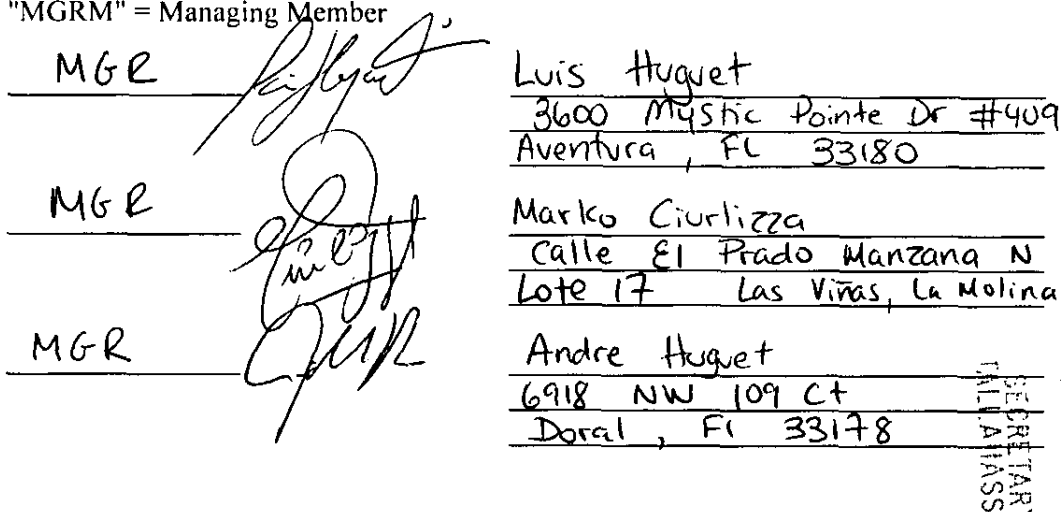 "MGRM" = Managing Member
MGR
Luis Huguet
3600 Mystic Pointe Dr #409
Aventura, FL 33180
MGR
Marko Ciurlizza
Calle El Prado Manzana N
Lote 17 Las Viñas, La Molina
MGR
Andre Huguet
6918 NW 109 Ct
Doral, Fl 33178
SECRETAR
TALLAHASS